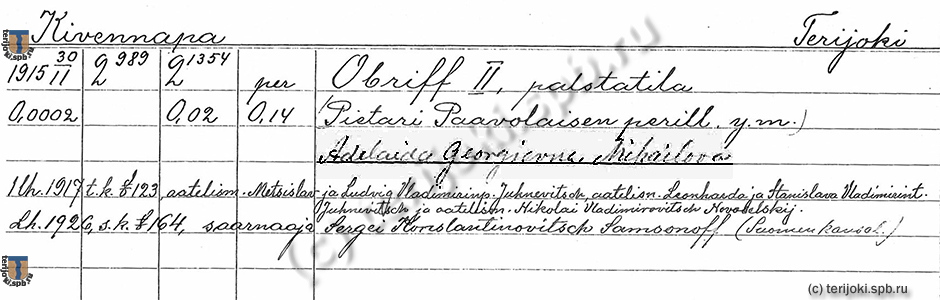 Kivennapa Terijoki
1915 30/II 2 989 2 1354 per Obriff II, palstatila
0,0002 0,02 0,14 (Pietari Paavolaisen perill. y.m.)
Adelaida Georgievna Mihailova
Lh. 1917, t.k. § 123, aatelism. Metsislav ja Ludvig Vladimirinp. Juhnevitsch, aatelisn. Leonharda ja Stanislava Vladimirint.
Juhnevitsch ja aatelism. Nikolai Vladimirovitsch Novobelskij.
Lh. 1926, s.k. § 164, saarnaaja Sergei Konstantinovitsch Samsonoff (Suomen kansal.)
terijoki.spb.ru
(c) terijoki.spb.ru